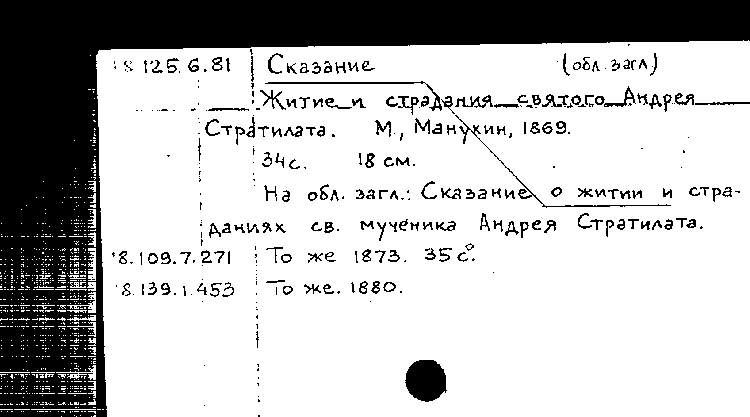 18.125.6.81 Сказание (обл. загл)
Житие и страдания святого Андрея
Стратилата. М., Манухин, 1869.
34 с. 18 см.
На обл. загл.: Сказание о житии и стра-
даниях св. мученика Андрея Стратилата.
18.109.7.271 То же 1873. 35 с.
18.139.1.453 То же. 1880.